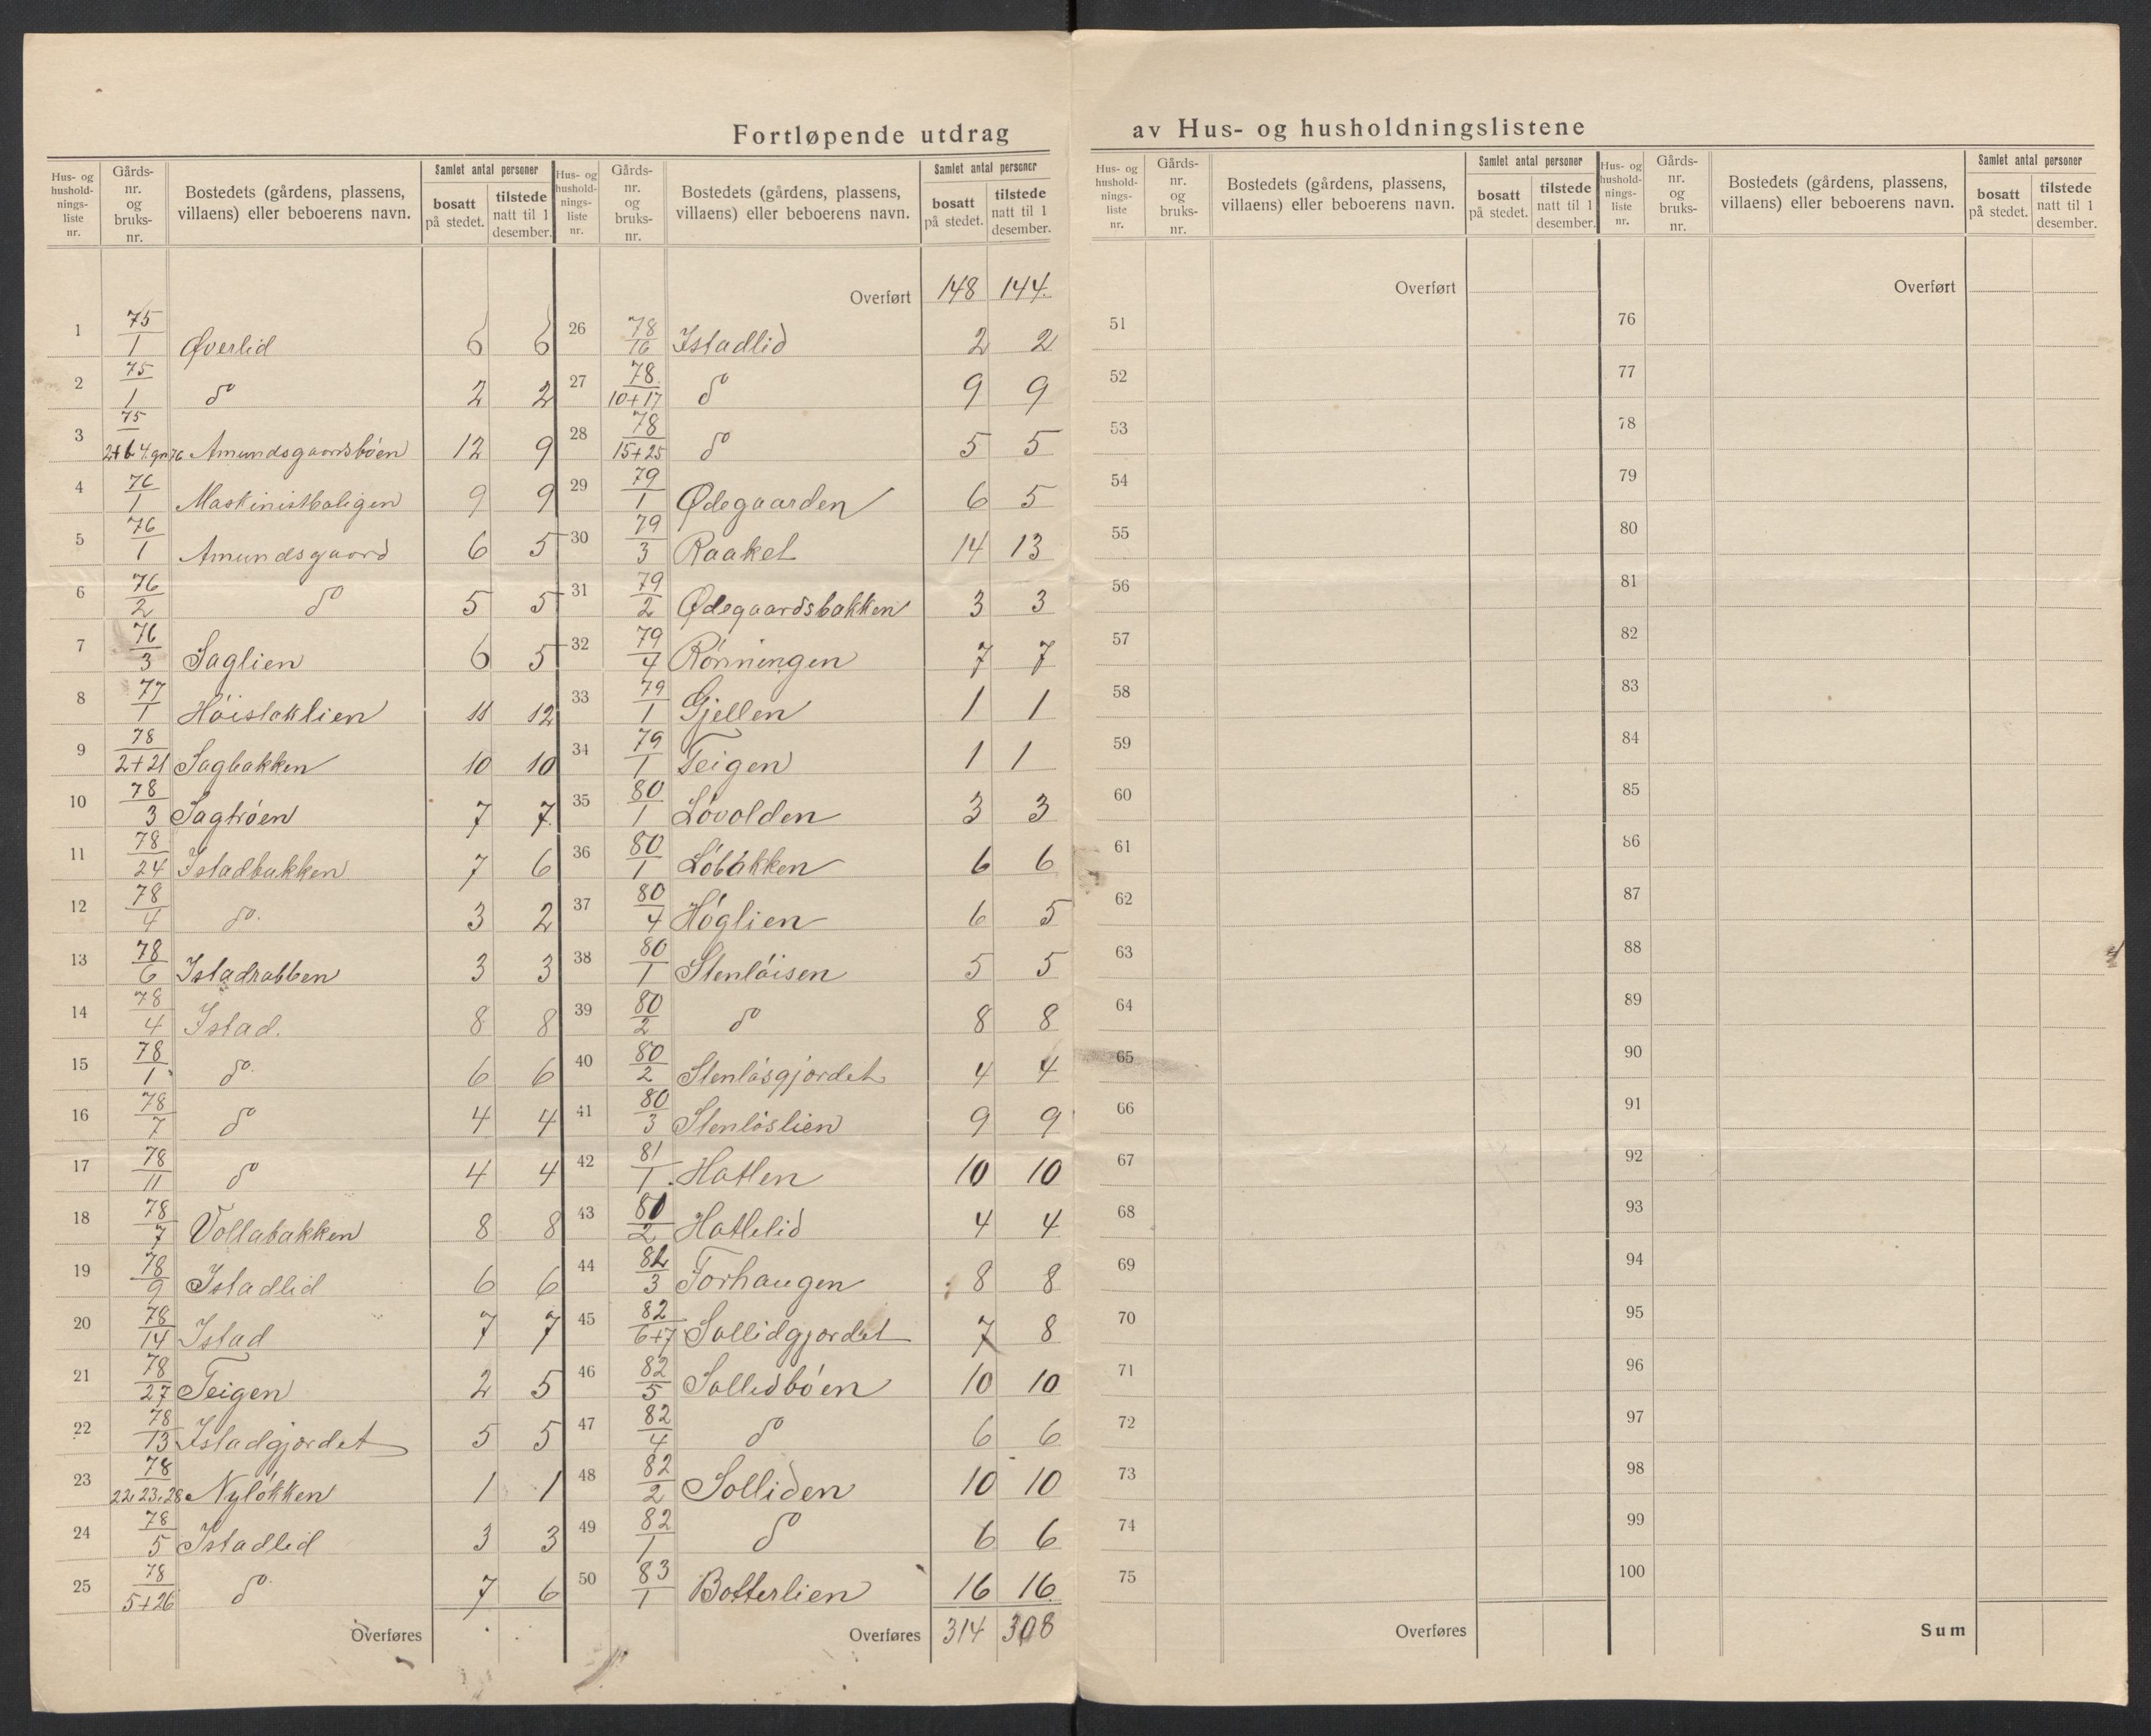 Fortløpende utdrag av Hus- og husholdningslistene
Hus- og hushold- nings- liste nr. | Gårds- nr. og bruks- nr. | Bostedets (gårdens, plassens, villaens) eller beboerens navn. | Samlet antal personer | bosatt på stedet. | tilstede natt til 1 desember.
1 75/1 Øverlid 6 6
2 75/1 do 2 2
3 75/2+6 4.gn 76 Amundsgaardsbøen 12 9
4 76/1 Maskinistboligen 9 9
5 76/1 Amundsgaard 6 5
6 76/2 do 5 5
7 76/3 Saglien 6 5
8 77/1 Høistaklien 11 12
9 78/2+21 Sagbakken 10 10
10 78/3 Sagtrøen 7 7
11 78/24 Istadbakken 7 6
12 78/4 do. 3 2
13 78/6 Istadrabben 3 3
14 78/4 Istad. 8 8
15 78/1 do. 6 6
16 78/7 do 4 4
17 78/11 do 4 4
18 78/7 Vollabakken 8 8
19 78/9 Istadlid 6 6
20 78/14 Istad 7 7
21 78/27 Teigen 2 5
22 78/13 Istadgjordet 5 5
23 78/22.23.28 Nyløkken 1 1
24 78/5 Istadlid 3 3
25 78/5+26 do. 7 6
Overføres
Hus- og hushold- nings- liste nr. | Gårds- nr. og bruks- nr. | Bostedets (gårdens, plassens, villaens) eller beboerens navn. | Samlet antal personer | bosatt på stedet. | tilstede natt til 1 desember.
Overført 148 144.
26 78/16 Istadlid 2 2
27 78/10+17 do 9 9
28 78/15+25 do 5 5
29 79/1 Ødegaarden 6 5
30 79/3 Raaket 14 13
31 79/2 Ødegaardsbakken 3 3
32 79/4 Rønningen 7 7
33 79/1 Gjellen 1 1
34 79/1 Teigen 1 1
35 80/1 Løvolden 3 3
36 80/1 Løbakken 6 6
37 80/4 Høglien 6 5
38 80/1 Stenløisen 5 5
39 80/2 do 8 8
40 80/2 Stenløsgjordet 4 4
41 80/3 Stenløslien 9 9
42 81/1 Hatlen 10 10
43 81/2 Hatlelid 4 4
44 82/3 Torhaugen 8 8
45 82/6+7 Sollidgjordet 7 8
46 82/5 Sollidbøen 10 10
47 82/4 do 6 6
48 82/2 Solliden 10 10
49 82/1 do 6 6
50 83/1 Botterlien 16 16
Overføres 314 308
Hus- og hushold- nings- liste nr. | Gårds- nr. og bruks- nr. | Bostedets (gårdens, plassens, villaens) eller beboerens navn. | Samlet antal personer | bosatt på stedet. | tilstede natt til 1 desember.
Overført
51
52
53
54
55
56
57
58
59
60
61
62
63
64
65
66
67
68
69
70
71
72
73
74
75
Overføres
Hus- og hushold- nings- liste nr. | Gårds- nr. og bruks- nr. | Bostedets (gårdens, plassens, villaens) eller beboerens navn. | Samlet antal personer | bosatt på stedet. | tilstede natt til 1 desember.
Overført
76
77
78
79
80
81
82
83
84
85
86
87
88
89
90
91
92
93
94
95
96
97
98
99
100
Sum